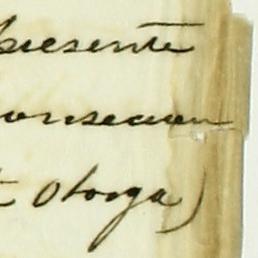 presente
consecuen
t otorga)